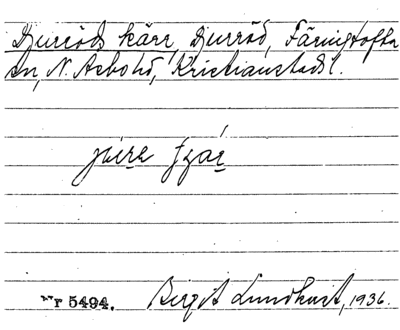 Djurröds kärr, Djurröd, Färingtofta
sn, N. Åsbo hd, Kristianstads l.
Nr 5494. Birgit Lundkvist, 1936.